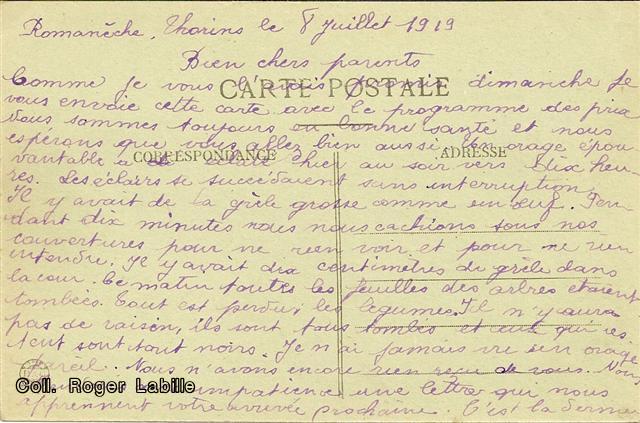 Romanèche, Thorins le 8 Juillet 1919
Bien chers parents
Comme je vous l'avais promis dimanche je
CARTE POSTALE
vous envoie cette carte avec le programme des prix
Nous sommes toujours en bonne santé et nous
espérons que vous allez bien aussi. Un orage épou
CORRESPONDANCE
ADRESSE
vantable a éclaté hier au soir vers dix heu-
res. Les éclairs se succédaient sans interruption,
Il y avait de la grêle grosse comme un œuf. Pen-
dant dix minutes nous nous cachions sous nos
couvertures pour ne rien voir et pour ne rien
intendre. Il y avait dix centimètres de grêle dans
la cour. Ce matin toutes les feuilles des arbres étaient
tombées. Tout est perdu, les légumes. Il n'y aura
pas de raisin, ils sont tous tombés et ceux qui res
tent sont tout noirs. Je n'ai jamais vu un orage
pareil. Nous n'avons encore rien reçu de vous. Nous
Coll. Roger Labille
impatience une lettre qui nous
apprennent votre arrivée prochaine. C'est la dernier